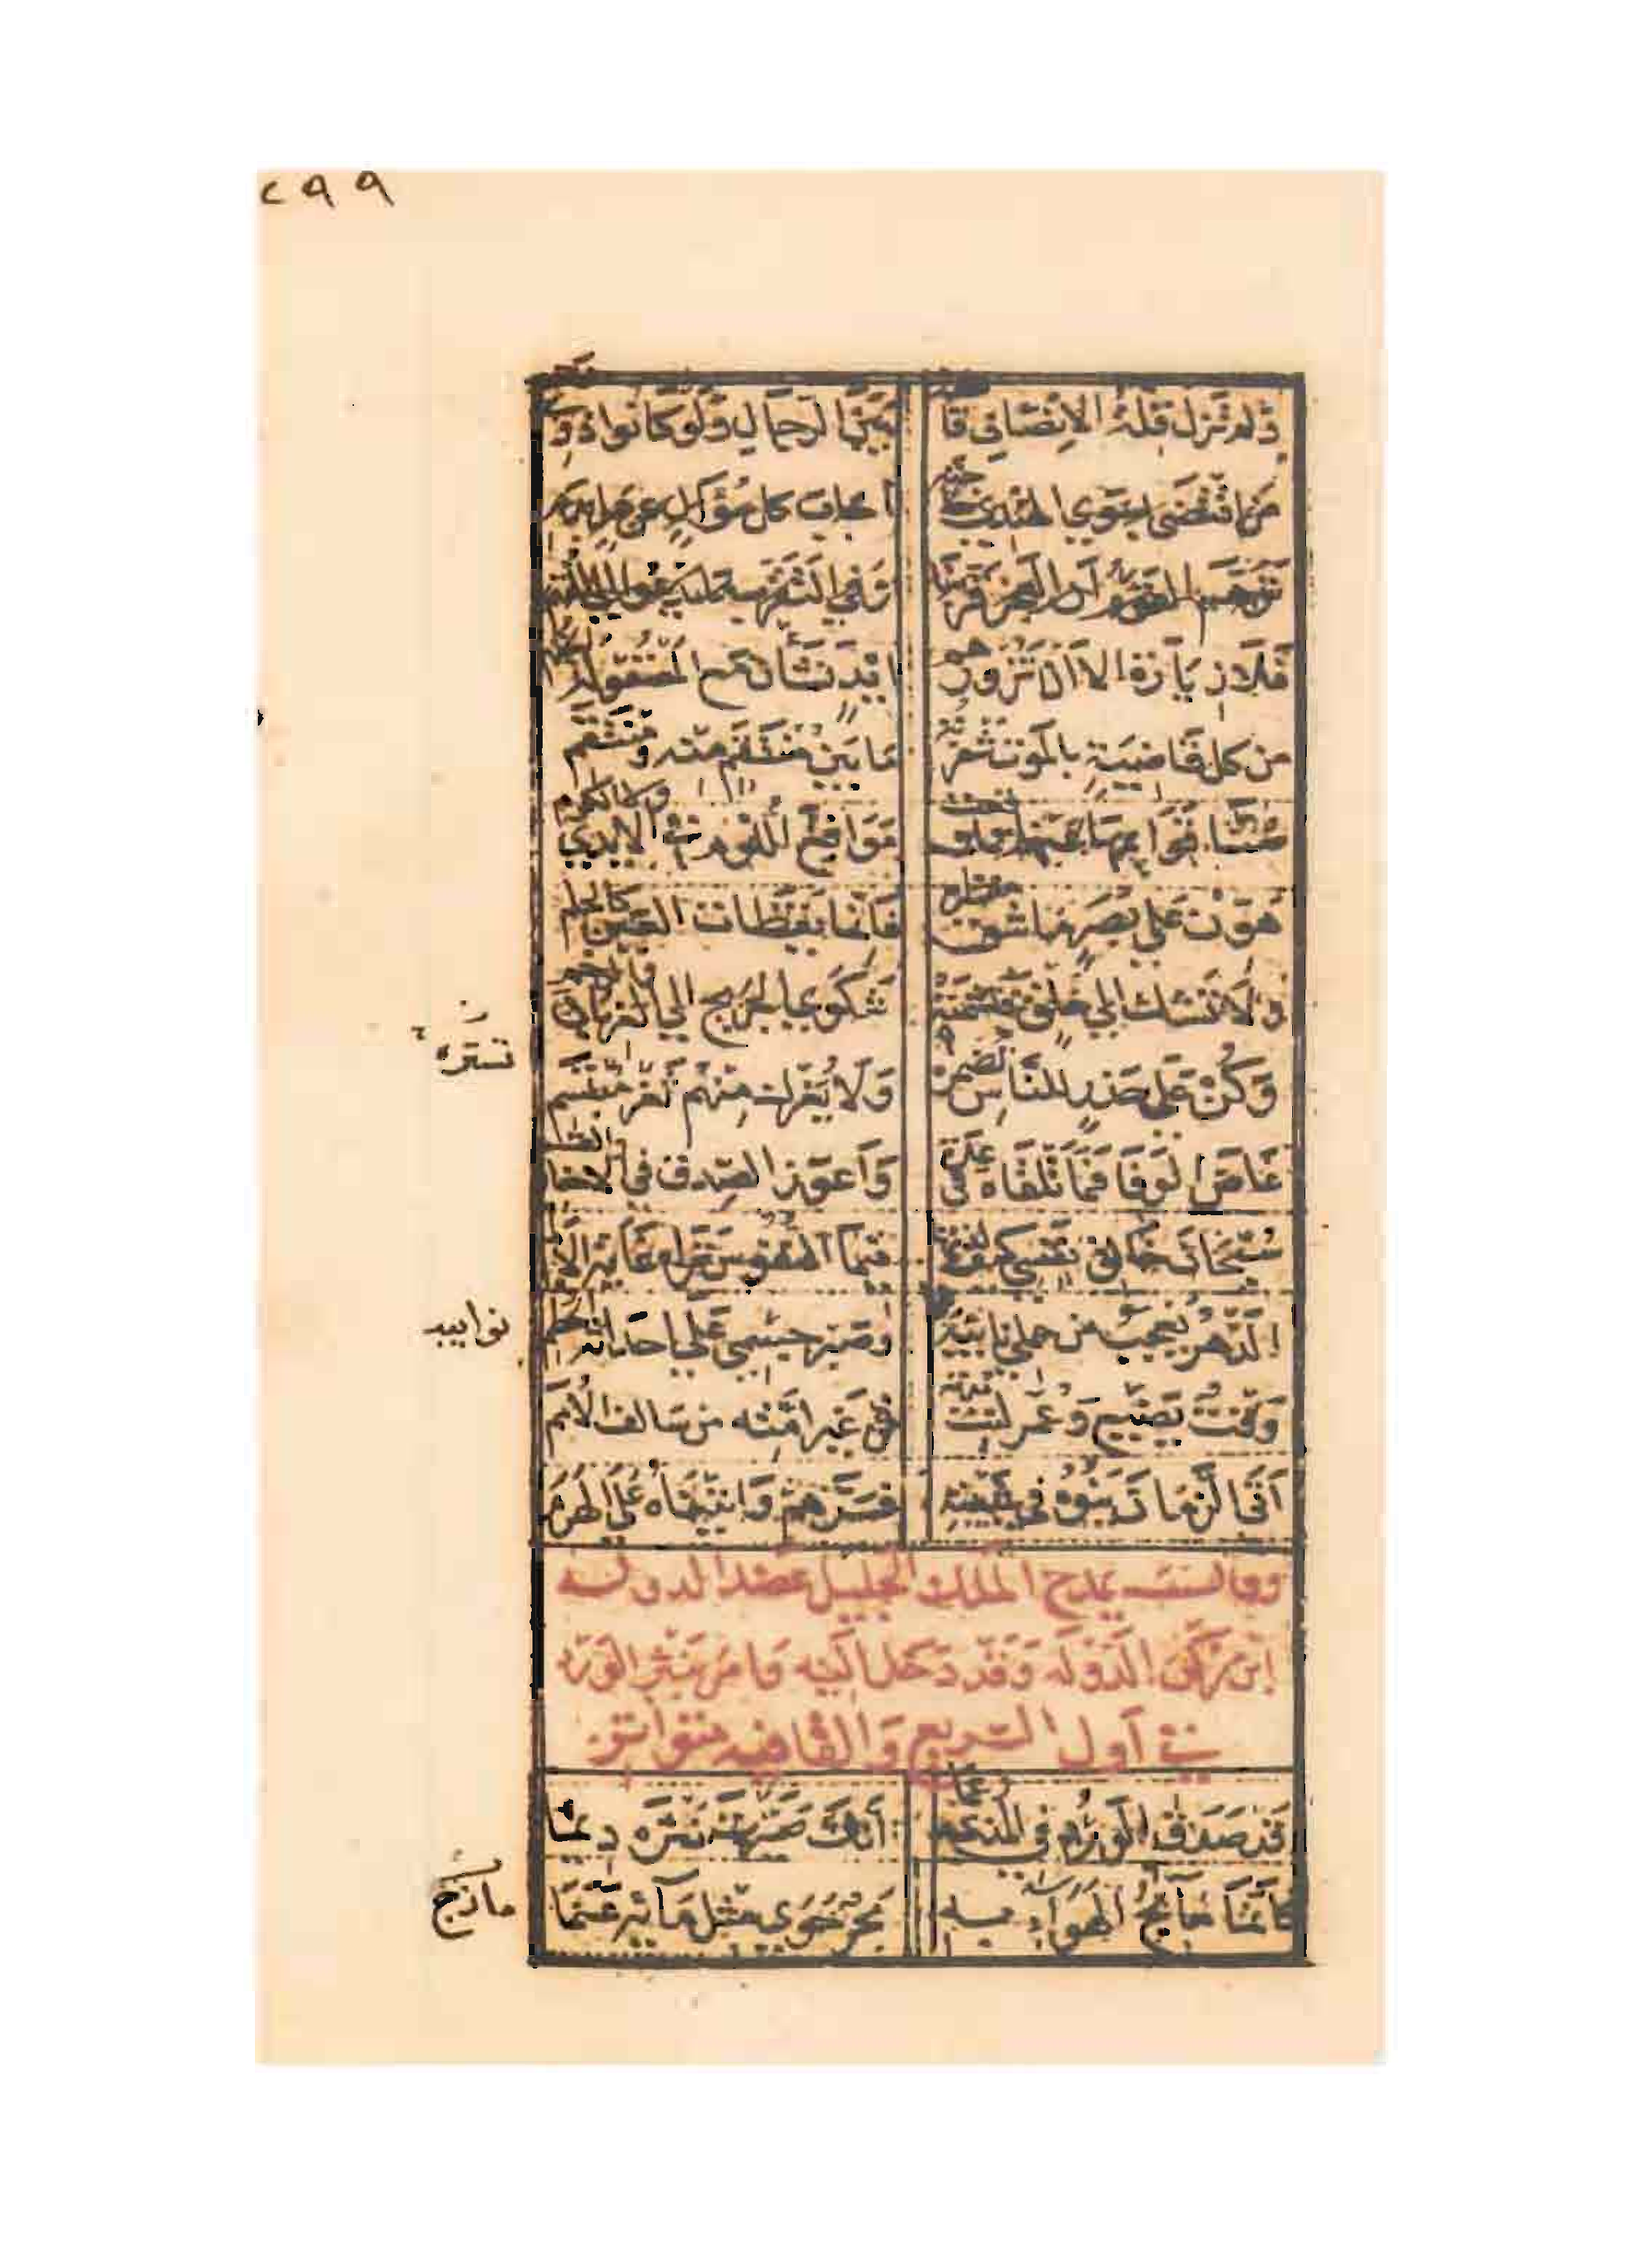 ٢٩٩
ولم تزل قلة الانصاف قاطعة بين الرجال ولو كانوا ذوي رحم
من اقتضى بسوي الهندي حاجته اجاب كل سؤال عن هل بلم
توهم القوم أن العجز قربنا وفي التقرب ما يدعو الي التهم
فلا زيارة الا ان تزورهم ايد نشأن مع المصقولة الخذم
من كل قاضية بالموت شفرته ما بين منتقم منه ومنتقم
صنا قوايمها عنهم فما وقعت مواقع اللؤم في الايدي ولا الكزم
هون علي بصر ما شق منظره فانما يقظات العين كالحلم
ولا تشك الي خلق فتشمته شكوي الجريح الي الغربان والرخم
وكن علي حذر للناس تضمره ولا يغرك منهم ثغر مبتسم
تستره
غاض الوفا فما تلقاه في عدة واعوز الصدق في الاخبار والقسم
سبحان خالق نفسي كيف لذتها فيما النفوس تراه غاية الالم
الدهر يعجب من حملي نايبه وصبر جسمي علي احداثه الحطم
نوايبه
وقت يضيع وعمر ليت مدته في غير امته من سالف الأمم
أتي الزمان بنوه في شبيبته فسرهم واتيناه علي الهرم
وقال يمدح الملك الجليل عضد الدولة
ابن ركن الدولة وقد دخل اليه وامر بنثر الورد
في اول السريع والقافيه متواتر
قد صدق الورد في الذي زعما أنك صيرت نثره ديما
كانما مايج الهواء به بحر حوي مثل مآئه عنما
مازج